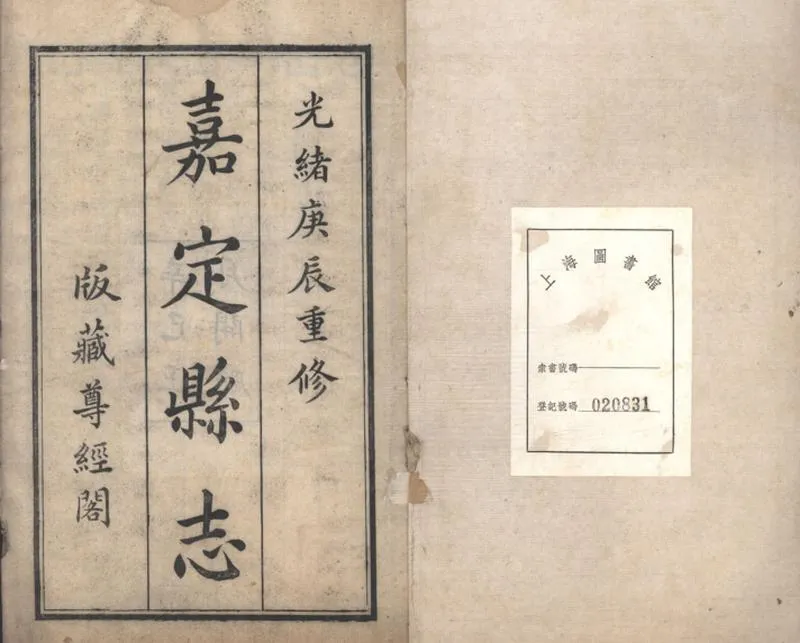 光緒庚辰重修
嘉定縣志
版藏尊經閣
上海圖書館
索書號碼
登記號碼 020831